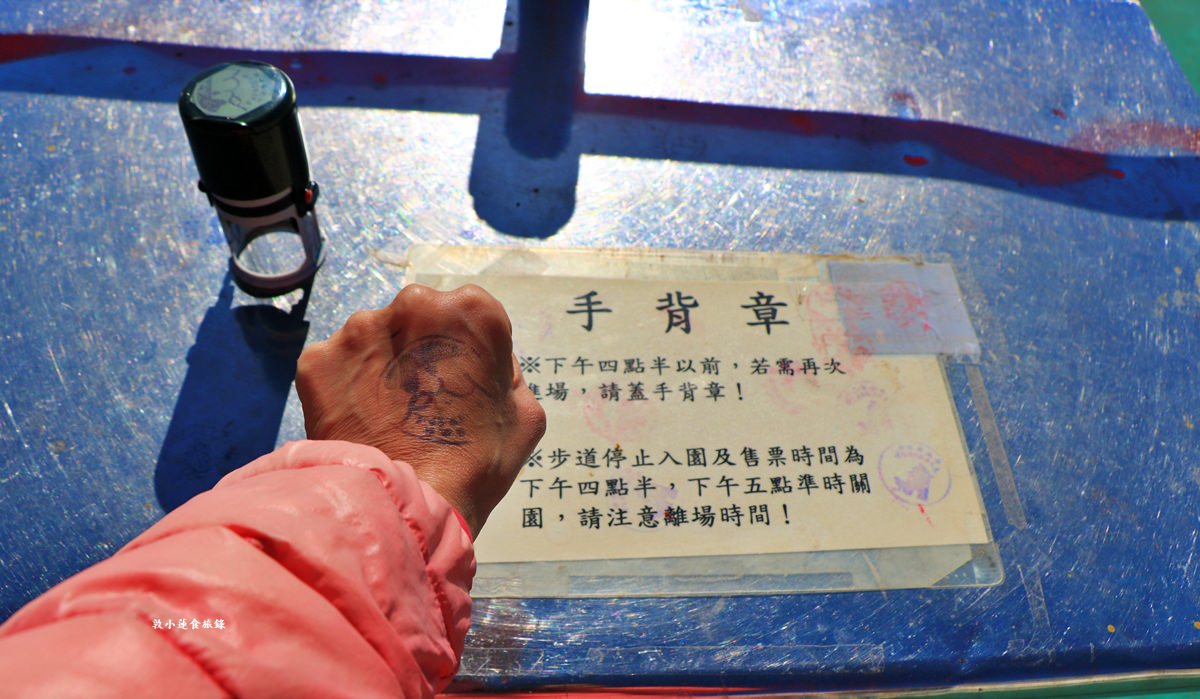 手背章
※下午四點半以前，若需再次
進場，請蓋手背章！
※步道停止入園及售票時間為
下午四點半，下午五點準時關
園，請注意離場時間！
敦小蓮食旅錄